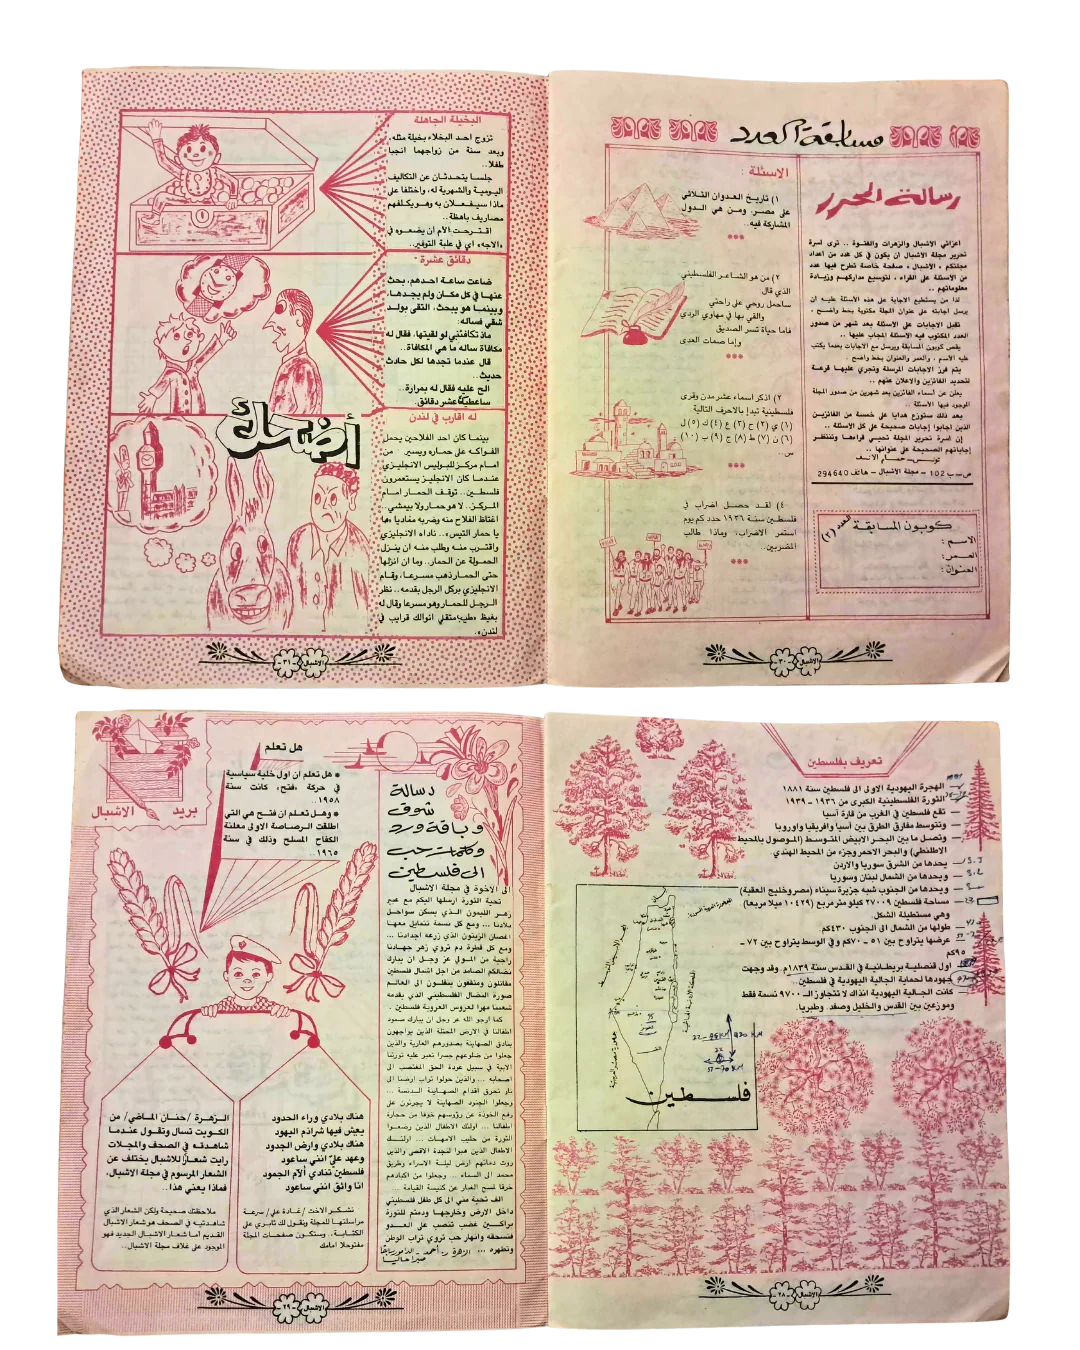 مسابقة العدد
رسالة المحرر
اعزائي الاشبال والزهرات والفتوة .. ترى اسرة
تحرير مجلة الاشبال ان يكون في كل عدد من اعداد
مجلتكم ، الاشبال ، صفحة خاصة تطرح فيها عدد
من الاسئلة على القراء ، لتوسيع مداركهم وزيادة
معلوماتهم ..
لذا من يستطيع الاجابة على هذه الاسئلة عليه ان
يرسل اجابته على عنوان المجلة مكتوبة بخط واضح .
تقبل الاجابات على الاسئلة بعد شهر من صدور
العدد المكتوب فيه الاسئلة المجاب عليها ..
يقص كوبون المسابقة ويرسل مع الاجابات بعدما يكتب
عليه الاسم . والعمر والعنوان بخط واضح .
يتم فرز الاجابات المرسلة وتجري عليها قرعة
لتحديد الفائزين والاعلان عنهم ..
يعلن عن أسماء الفائزين بعد شهرين من صدور المجلة
الموجود فيها الأسئلة ..
بعد ذلك ستوزع هدايا على خمسة من الفائزين
الذين اجابوا إجابات صحيحة على كل الأسئلة ..
إن أسرة تحرير المجلة تحيي قراءها وتنتظر
إجاباتهم الصحيحة على عنوانها ..
تونس ـ حمام الانف
ص.ب 102 ـ مجلة الاشبال ـ هاتف 294640
كوبون المسابقة العدد (٢)
الاسم :
العمر :
العنوان :
الاسئلة :
١) تاريخ العدوان الثلاثي
على مصر، ومن هي الدول
المشاركة فيه.
٢) من هو الشاعر الفلسطيني
الذي قال
ساحمل روحي على راحتي
والقي بها في مهاوي الردي
فاما حياة تسر الصديق
وإما صمات العدى
٢) اذكر اسماء عشر مدن وقرى
فلسطينية تبدأ بالاحرف التالية
(١) ي (٢) ح (٣) ع (٤) ك (٥) ل
(٦) ن (٧) ط (٨) ج (٩) ب (١٠)
س ..
٤) لقد حصل اضراب في
فلسطين سنة ١٩٣٦ حدد كم يوم
استمر الاضراب، وماذا طالب
المضربين..
الاشبال ـ ٣٠ ـ
البخيلة الجاهلة
تزوج احد البخلاء بخيلة مثله.
وبعد سنة من زواجهما انجبا
طفلا..
جلسا يتحدثان عن التكاليف
اليومية والشهرية له، واختلفا على
ماذا سيفعلان به وهو يكلفهم
مصاريف باهظة..
اقترحت الأم ان يضعوه في
«الاجه» اي في علبة التوفير..
دقائق عشرة
ضاعت ساعة احدهم، بحث
عنها في كل مكان ولم يجدها،
وبينما هو يبحث، التقى بولد
شقي فساله:
ماذ تكافئني لو لقيتها، فقال له
مكافأة ساله ما هي المكافأة..
قال عندما تجدها لكل حادث
حديث..
الح عليه فقال له بمرارة..
ساعطيك عشر دقائق.
له اقارب في لندن
بينما كان احد الفلاحين يحمل
الفواكه على حماره ويسير من
امام مركز للبوليس الانجليزي
عندما كان الانجليز يستعمرون
فلسطين.. توقف الحمار امام
المركز.. لا هو حمار ولا بيمشي.
اغتاظ الفلاح منه وضربه مغاديا «ها
يا حمار التيس».. ناداه الانجليزي
واقترب منه وطلب منه ان ينزل
الحمولة عن الحمار.. وما ان انزلها
حتى الحمار ذهب مسرعا، وقام
الانجليزي بركل الرجل بقدمه.. نظر
الرجل للحمار وهو مسرعا وقال له
بغيظ «طيب متقلي انوالك قرايب في
لندن».
أضحك
الاشبال ـ ٣١ ـ
تعريف بفلسطين
الهجرة اليهودية الاولى الى فلسطين سنة ١٨٨١
الثورة الفلسطينية الكبرى من ١٩٣٦ ـ ١٩٣٩
ـ تقع فلسطين في الغرب من قارة آسيا
ـ وتتوسط مفارق الطرق بين آسيا وافريقيا واوروبا
ـ وتصل ما بين البحر الابيض المتوسط (الموصول بالمحيط
الاطلنطي) والبحر الاحمر وجزء من المحيط الهندي
ـ يحدها من الشرق سوريا والاردن
ـ ويحدها من الشمال لبنان وسوريا
ـ ويحدها من الجنوب شبه جزيرة سيناء (مصر وخليج العقبة)
ـ مساحة فلسطين ٢٧٠٠٩ كيلو متر مربع (١٠٤٢٩ ميلا مربعا)
وهي مستطيلة الشكل.
ـ طولها من الشمال الى الجنوب ٤٣٠كم
ـ عرضها يتراوح بين ٥١ ـ ٧٠كم و في الوسط يتراوح بين ٧٢ ـ
٩٥كم
ـ اول قنصلية بريطانية في القدس سنة ١٨٣٩م. وقد وجهت
جهودها لحماية الجالية اليهودية في فلسطين..
ـ كانت الجالية اليهودية انذاك لا تتجاوز الـ ٩٧٠٠ نسمة فقط
وموزعين بين القدس والخليل وصفد. وطبريا.
430 KM
51-70 KM
فلسطين
الاشبال ـ ٢٨ ـ
رسالة
شوق
وباقة ورد
وكلمات حب
الى فلسطين
الى الاخوة في مجلة الاشبال
تحية الثورة ارسلها اليكم مع عبير
زهر الليمون الذي يسكن سواحل
بلادنا ... ومع كل نسمة تتمايل معها
اغصان الزيتون الذي زرعه اجدادنا ..
ومع كل قطرة دم تروي زهر جهادنا
راجية من المولى عز وجل ان يبارك
نضالكم الصامد من اجل اشبال فلسطين
مقاتلون ومثقفون ينقلون الى العالم
صورة النضال الفلسطيني الذي يقدمه
شعبنا مهرا لعروس العروبة فلسطين .
كما ارجو الله عز وجل ان يبارك صمود
اطفالنا في الارض المحتلة الذين يواجهون
بنادق الصهاينة بصدورهم العارية والذين
جعلوا من ضلوعهم جسرا تعبر عليه ثورتنا
الابية في سبيل عودة الحق المغتصب الى
اصحابه ... والذين حولوا تراب ارضنا الى
نار تحرق اقدام الصهاينة الدنسة ...
وجعلوا الجنود الصهاينة لا يجرئون على
رفع الخوذة عن رؤوسهم خوفا من حجارة
اطفالنا .. اولئك الاطفال الذين رضعوا
الثورة من حليب الامهات ... اولئك
الاطفال الذين هبوا لنجدة الاقصى والذين
روت دمائهم ارض ليلة الاسراء وطريق
محمد الى السماء .. وجعلوا من اكبادهم
خرقا لمسح الغبار عن كنيسة القيامة ...
الف تحية مني الى كل طفل فلسطيني
داخل الارض وخارجها ودمتم للثورة
براكين غضب تنصب على العدو
فتسحقه وانهار حب تروي تراب الوطن
وتطهره ...
هل تعلم
* هل تعلم ان اول خلية سياسية
في حركة «فتح» كانت سنة
١٩٥٨..
* وهل تعلم ان فتح هي التي
اطلقت الرصاصة الاولى معلنة
الكفاح المسلح وذلك في سنة
١٩٦٥..
بريد الاشبال
هناك بلادي وراء الحدود
يعيش فيها شراذم اليهود
هناك بلادي وارض الجدود
وعهد عليّ انني ساعود
فلسطين تنادي ألام الجمود
انا واثق انني ساعود
نشكر الاخت/ غادة علي/ سرعة
مراسلتها للمجلة ونقول لك ثابري على
الكتابة.. وستكون صفحات المجلة
مفتوحة امامك
الزهرة/ حنان الماضي/ من
الكويت تسال وتقول عندما
شاهدته في الصحف والمجلات
رايت شعارا للاشبال يختلف عن
الشعار المرسوم في مجلة الاشبال،
فماذا يعني هذا..
ملاحظتك صحيحة ولكن الشعار الذي
شاهدتيه في الصحف هو شعار الاشبال
القديم أما شعار الاشبال الجديد فهو
الموجود على غلاف مجلة الاشبال..
الاشبال ـ ٢٩ ـ